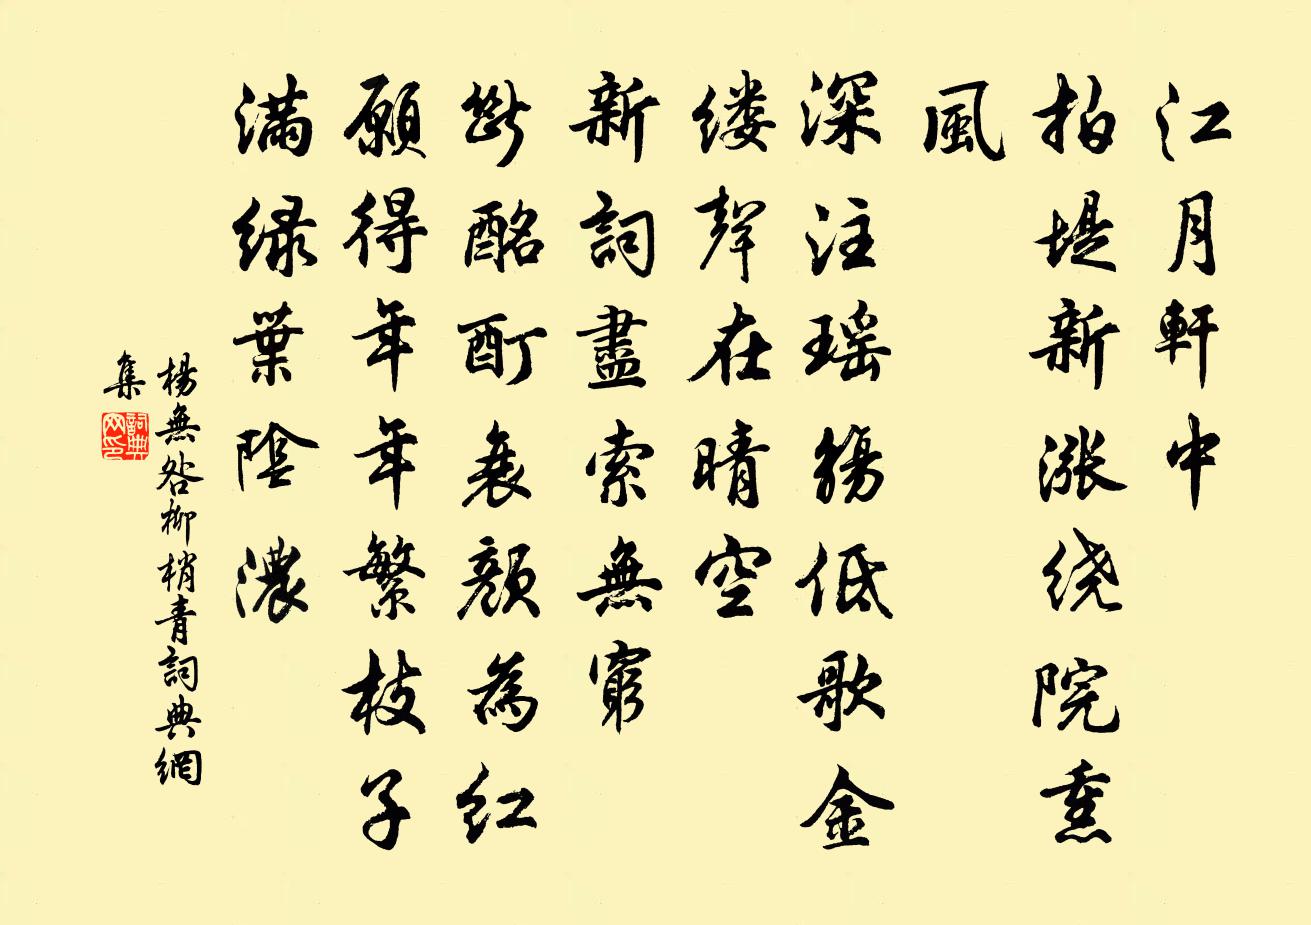 江月軒中
拍堤新漲绕院熏
風
深注瑶觴低歌金
缕聲在晴空
新詞盡索無窮
斷酩酊衰顏為红
願得年年繁枝子
滿绿葉陰濃
楊無咎柳梢青詞典網
集
詞典
网印